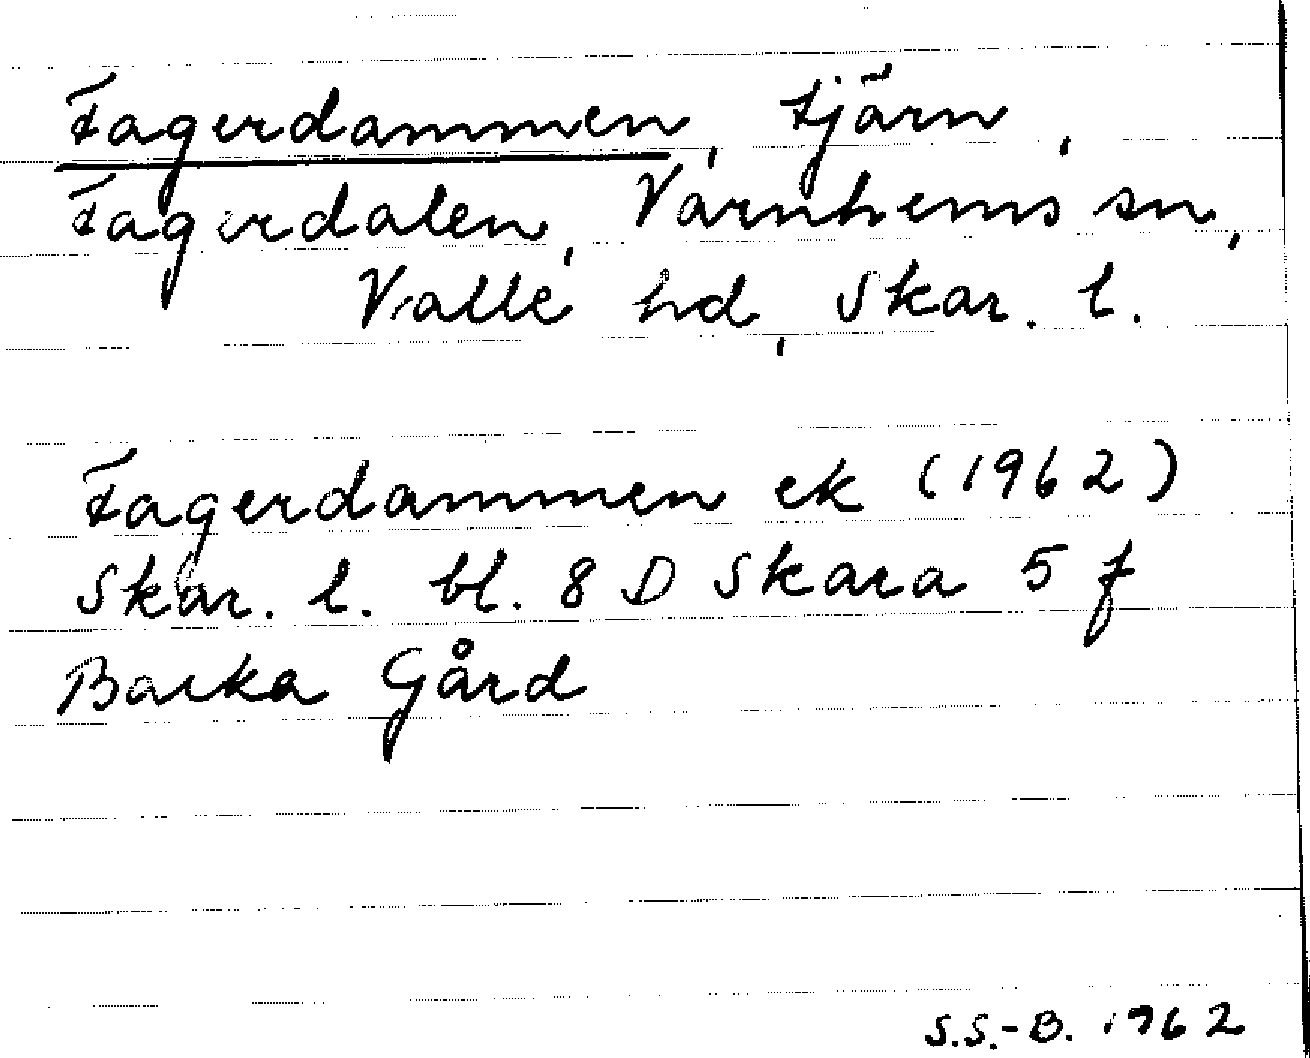 Fagerdammen, tjärn,
Fagerdalen, Varnhems sn,
Valle hd, Skar. l.
Fagerdammen ek (1962)
Skar. l. bl. 8 D Skara 5 f
Backa Gård
S.S.-B. 1962